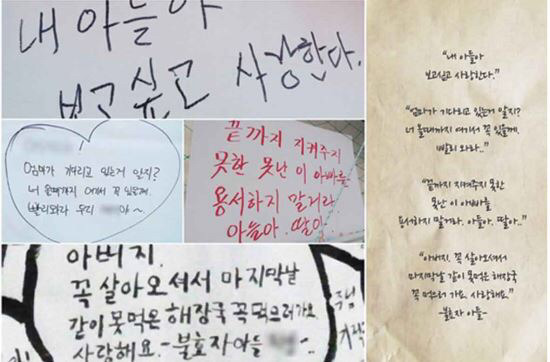 내 아들아
보고 싶고 사랑한다.
엄마가 기다리고 있는거 알지?
너 올때까지 여기서 꼭 있을께.
빨리와라 우리 야~
끝까지 지켜주지
못한 못난 이 아빠를
용서하지 말거라
아들아. 딸아.
아버지.
꼭 살아오셔서 마지막날
같이 못먹은 해장국 꼭 먹으러가요
사랑해요. -불효자 아들
"내 아들아
보고싶고 사랑한다."
"엄마가 기다리고 있는거 알지?
너 올때까지 여기서 꼭 있을께.
빨리 와라.."
"끝까지 지켜주지 못한
못난 이 아빠를
용서하지 말거라. 아들아. 딸아.."
"아버지. 꼭 살아오셔서
마지막날 같이 못먹은 해장국
꼭 먹으러 가요. 사랑해요."
-불효자 아들